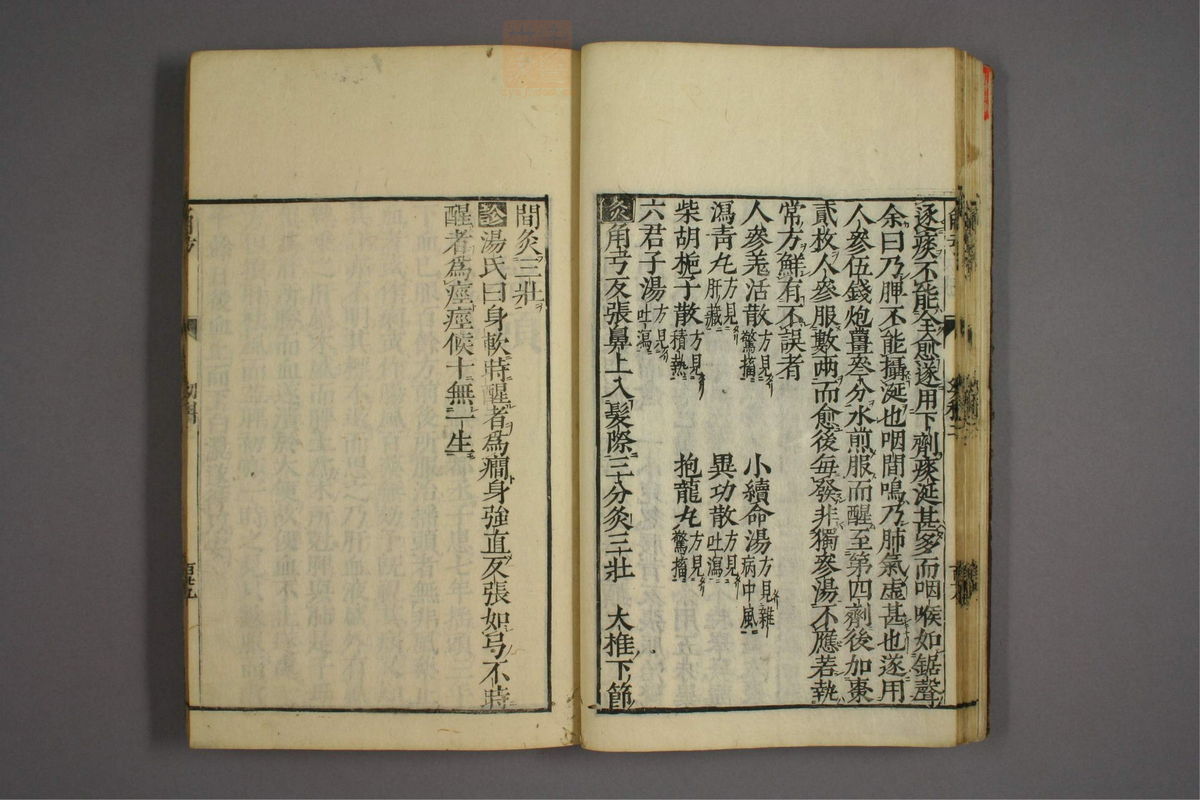 逐痰不能全愈遂用下劑痰涎甚多而咽喉如鋸聲
余曰乃脾不能攝涎也咽間鳴乃肺氣虛甚也遂用
人參伍錢炮薑叁分水煎服而醒至第四劑後加棗
貳枚人參服數兩而愈後每發非獨參湯不應若執
常方鮮有不誤者
人參羗活散方見驚搐 小續命湯方見雜病中風
瀉青丸方見肝臟 異功散方見吐瀉
柴胡梔子散方見積熱 抱龍丸方見驚搐
六君子湯方見吐瀉
灸角弓反張鼻上入髮際三分灸三壯 大椎下節
間灸三壯
診湯氏曰身軟時醒者爲癎身強直反張如弓不時
醒者爲痙痙候十無一生